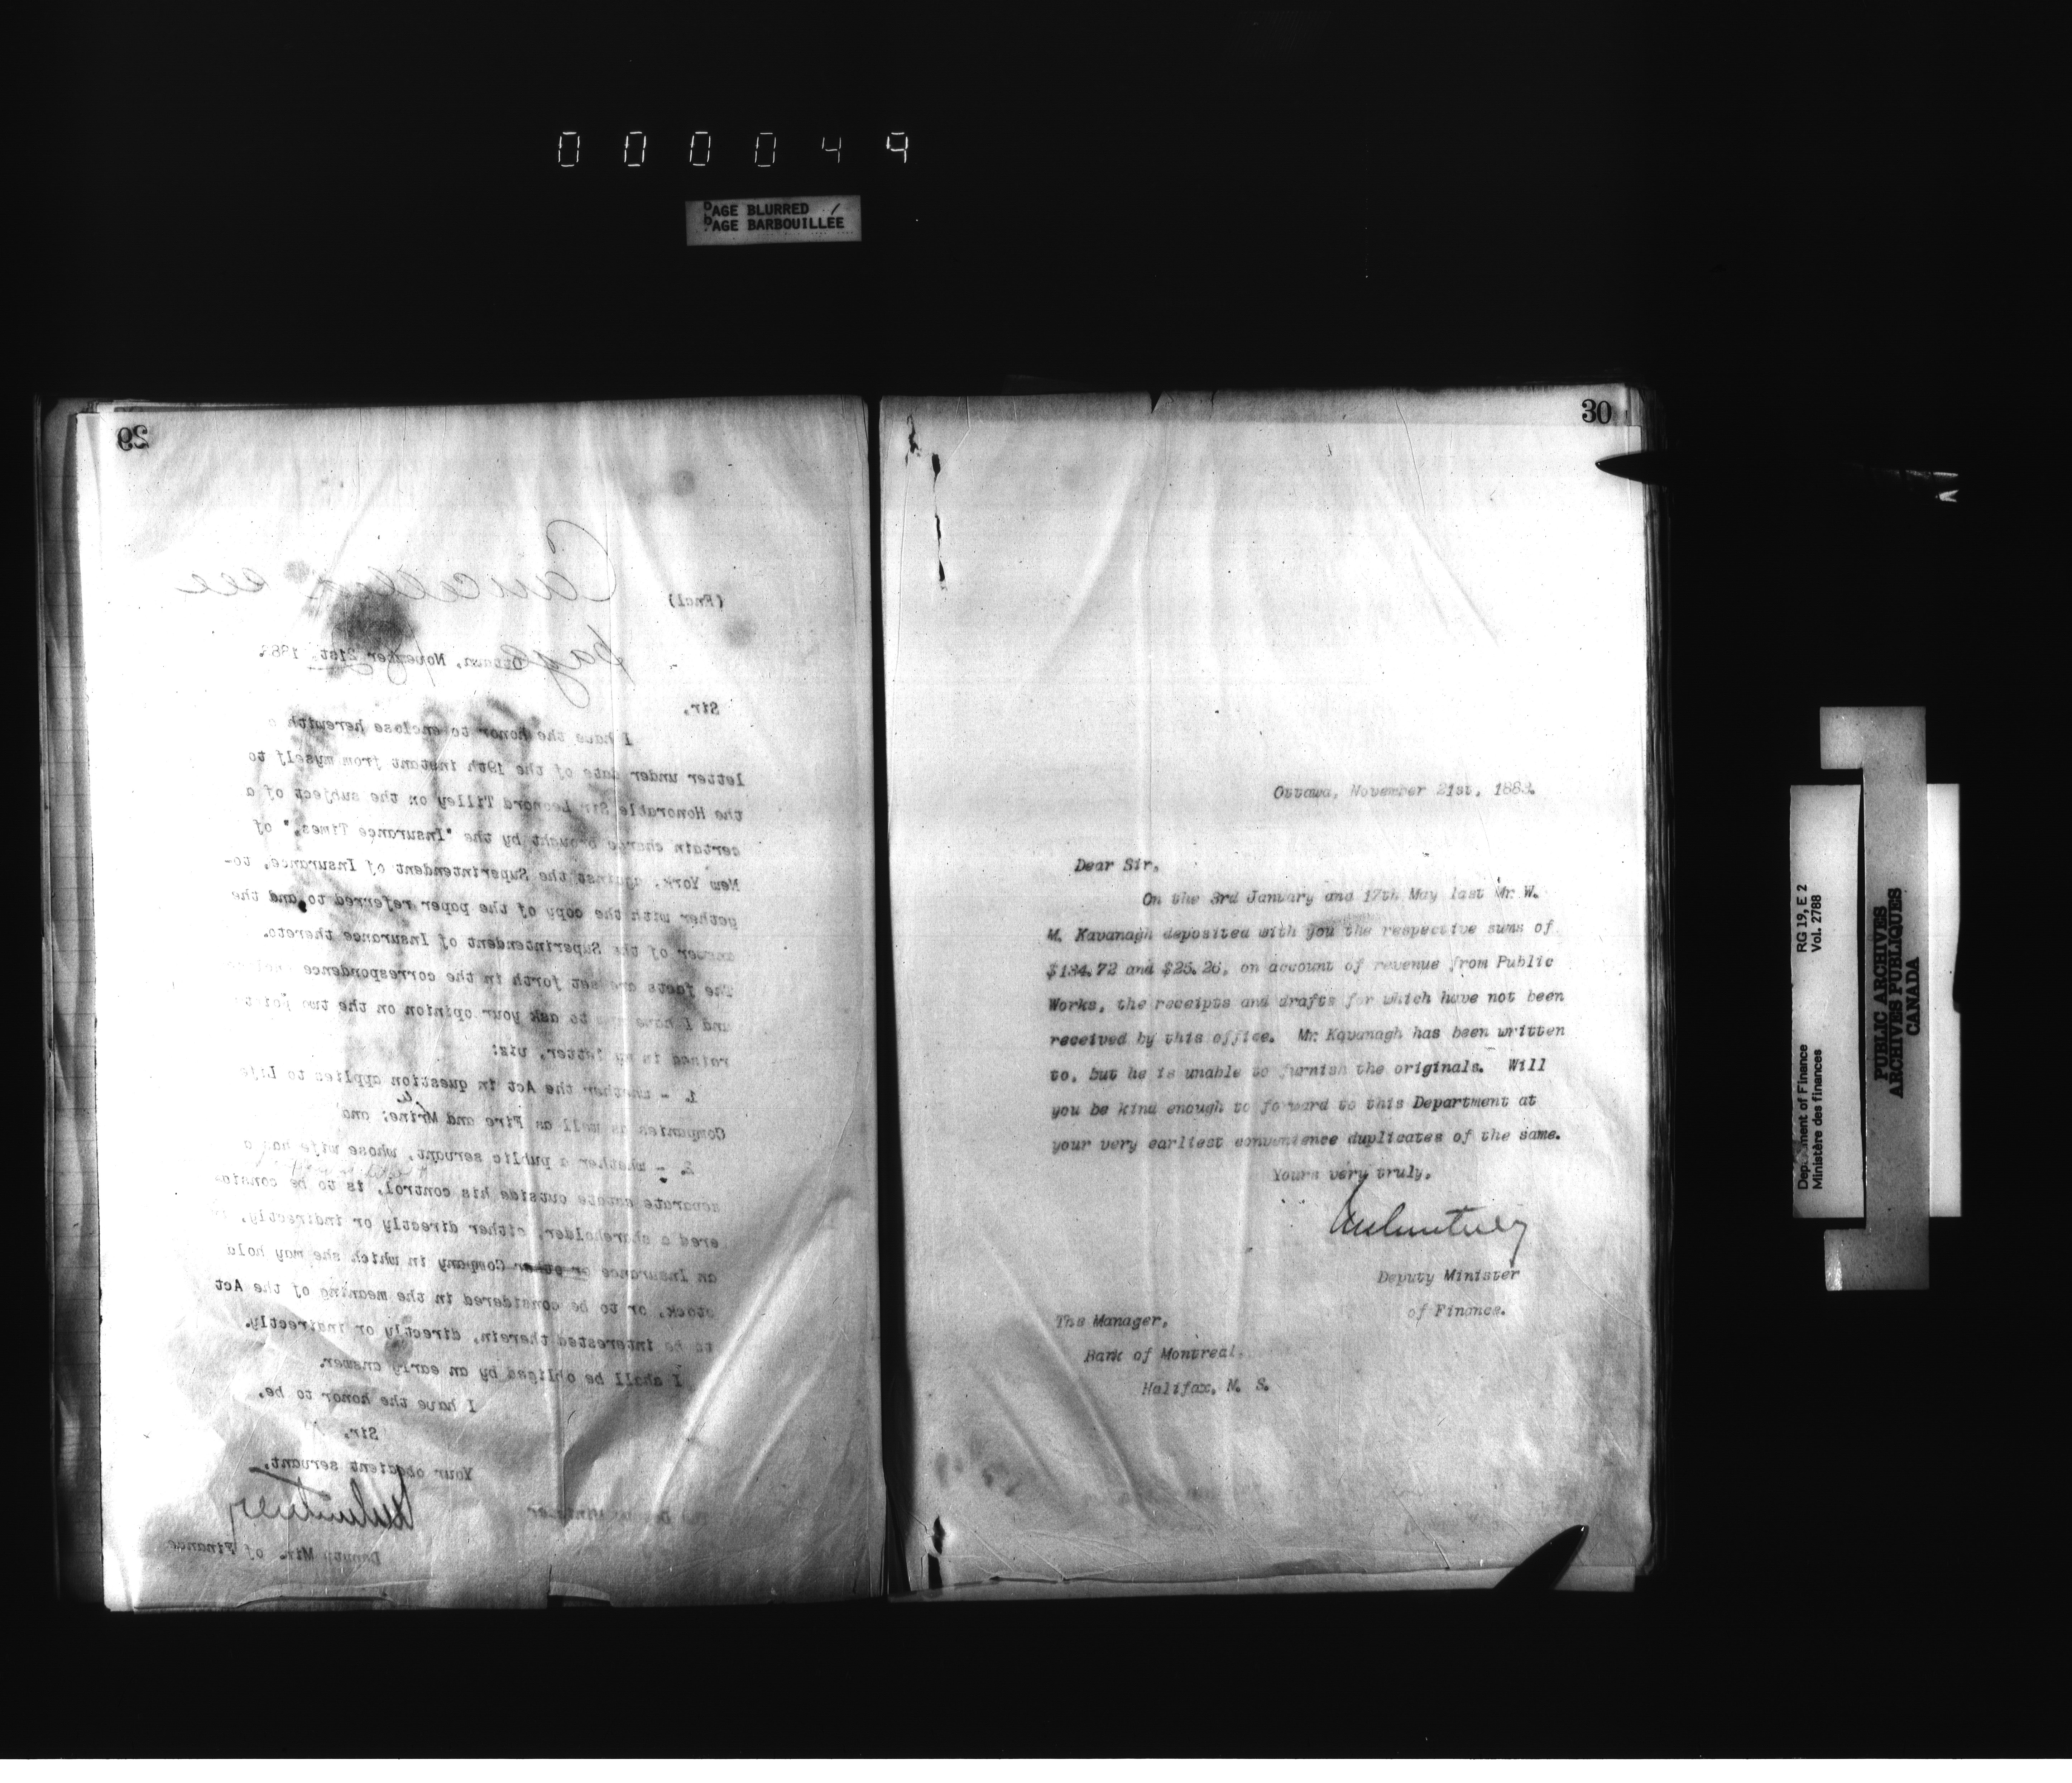 000049
PAGE BLURRED
PAGE BARBOUILLÉE
29
Cancelled see
page
(Encl)
Ottawa, November 21st, 1883.
Sir,
I have the honor to enclose herewith a
letter under date of the 19th instant from myself to
the Honorable Sir Leonard Tilley on the subject of a
certain charge brought by the "Insurance Times," of
New York, against the Superintendent of Insurance, to-
gether with the copy of the paper referred to and the
answer of the Superintendent of Insurance thereto.
The facts are set forth in the correspondence
and I have now to ask your opinion on the two points
raised in my letter, viz:
1. - whether the Act in question applies to Life
Companies as well as Fire and Mrine; and
2. - whether a public servant, whose wife has a
separate estate outside his control, is to be consid-
ered a shareholder, either directly or indirectly, in
an Insurance or other Company in which she may hold
stock, or to be considered in the meaning of the Act
to be interested therein, directly or indirectly.
I shall be obliged by an early answer.
I have the honor to be,
Sir,
Your obedient servant,
Deputy Min. of Finance
Deputy Minister
30
Ottawa, November 21st, 1883.
Dear Sir,
On the 3rd January and 17th May last Mr. W.
M. Kavanagh deposited with you the respective sums of
$134.72 and $25.26, on account of revenue from Public
Works, the receipts and drafts for which have not been
received by this office. Mr. Kavanagh has been written
to, but he is unable to furnish the originals. Will
you be kind enough to forward to this Department at
your very earliest convenience duplicates of the same.
Yours very truly,
Deputy Minister
of Finance.
The Manager,
Bank of Montreal,
Halifax, N. S.
Department of Finance RG 19, E 2
Ministère des finances Vol. 2788
PUBLIC ARCHIVES
ARCHIVES PUBLIQUES
CANADA